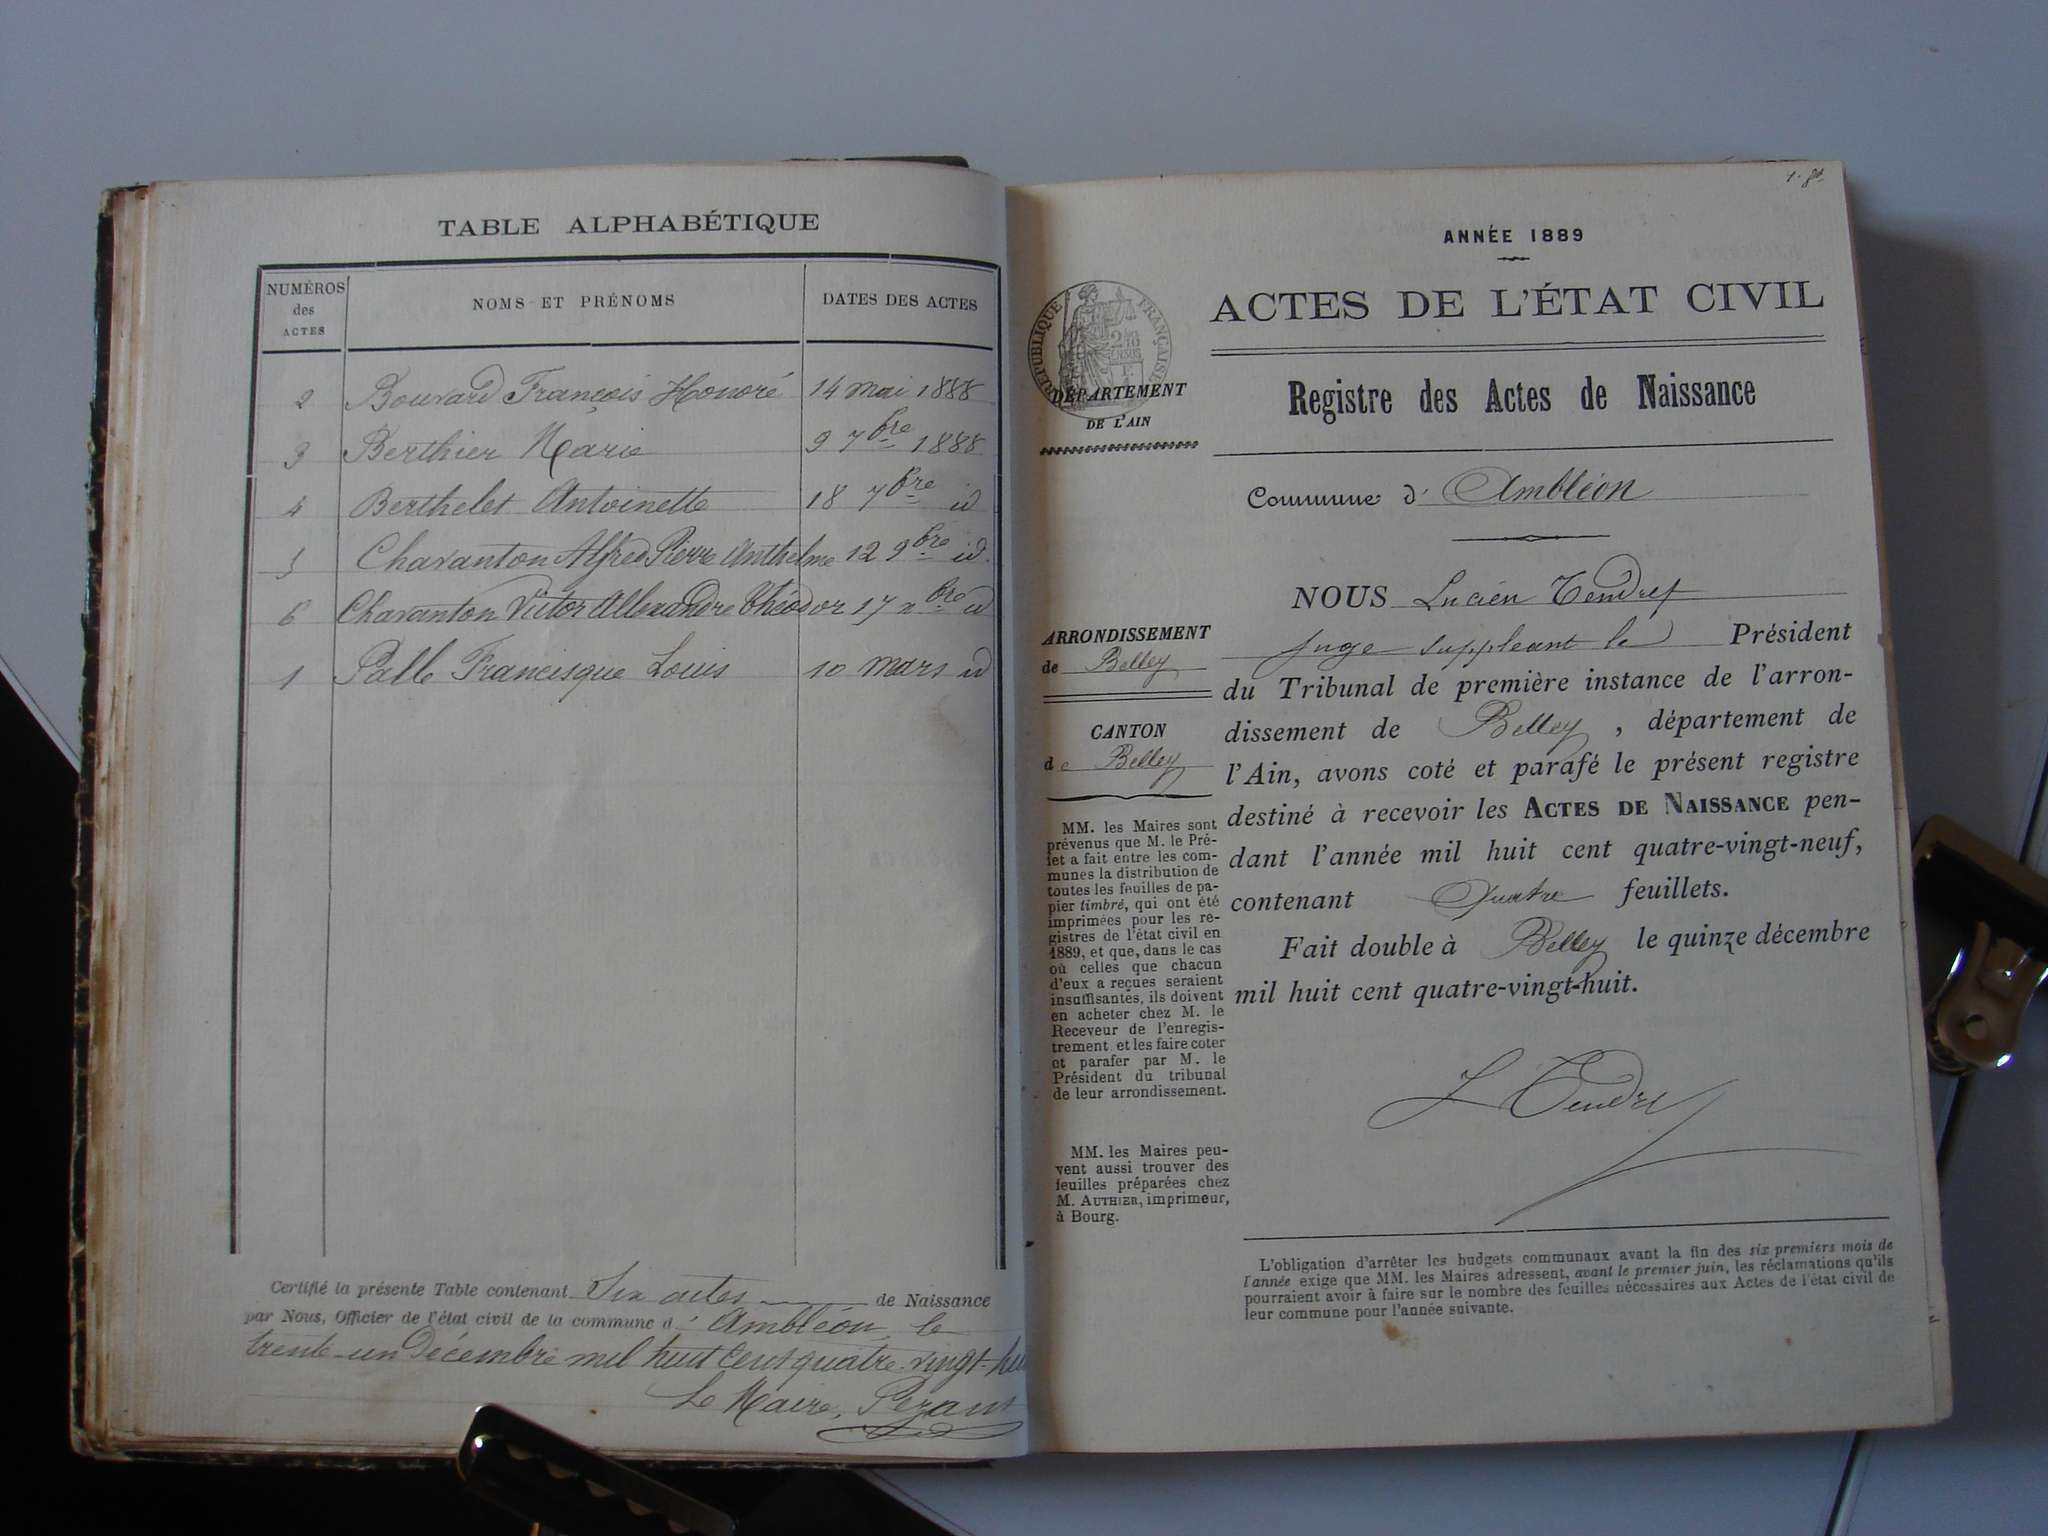 TABLE ALPHABÉTIQUE
NUMÉROS des ACTES
NOMS ET PRÉNOMS
DATES DES ACTES
2 Bouvard François Honoré 14 mai 1888
3 Berthier Marie 9 7bre 1888
4 Berthelet Antoinette 18 7bre id
5 Charanton Alfred Pierre Anthelme 12 9bre id.
6 Charanton Victor Allexandre Théodor 17 xbre id
1 Palle Francisque Louis 10 mars id
Certifié la présente Table contenant Six actes de Naissance
par Nous, Officier de l'état civil de la commune d' Ambléon, le
trente-un Décembre mil huit cent quatre-vingt-hu
Le Maire, Pezant
ANNÉE 1889
ACTES DE L'ÉTAT CIVIL
RÉPUBLIQUE FRANÇAISE
DÉPARTEMENT
DE L'AIN
Registre des Actes de Naissance
Commune d' Ambléon
ARRONDISSEMENT
de Belley
CANTON
de Belley
MM. les Maires sont
prévenus que M. le Pré-
fet a fait entre les com-
munes la distribution de
toutes les feuilles de pa-
pier timbré, qui ont été
imprimées pour les re-
gistres de l'état civil en
1889, et que, dans le cas
où celles que chacun
d'eux a reçues seraient
insuffisantes, ils doivent
en acheter chez M. le
Receveur de l'enregis-
trement et les faire coter
et parafer par M. le
Président du tribunal
de leur arrondissement.
MM. les Maires peu-
vent aussi trouver des
feuilles préparées chez
M. AUTHIER, imprimeur,
à Bourg.
NOUS Lucien Tendret
juge suppléant le Président
du Tribunal de première instance de l'arron-
dissement de Belley, département de
l'Ain, avons coté et parafé le présent registre
destiné à recevoir les ACTES DE NAISSANCE pen-
dant l'année mil huit cent quatre-vingt-neuf,
contenant Quatre feuillets.
Fait double à Belley le quinze décembre
mil huit cent quatre-vingt-huit.
L Tendret
L'obligation d'arrêter les budgets communaux avant la fin des six premiers mois de
l'année exige que MM. les Maires adressent, avant le premier juin, les réclamations qu'ils
pourraient avoir à faire sur le nombre des feuilles nécessaires aux Actes de l'état civil de
leur commune pour l'année suivante.